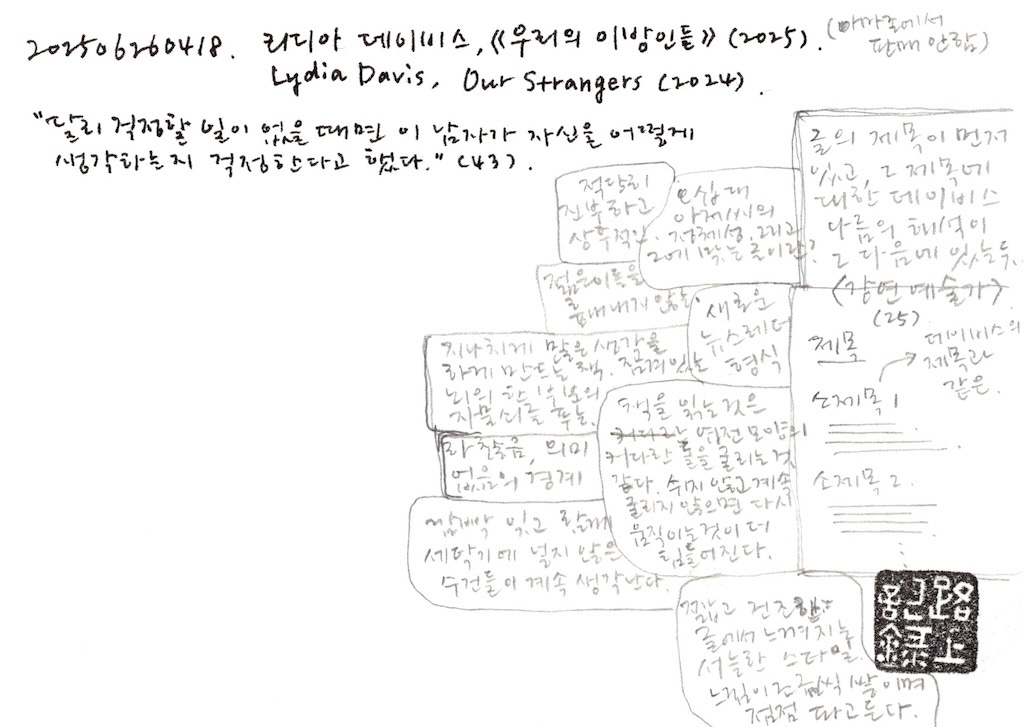 202506260418. 리디아 데이비스, 《우리의 이방인들》 (2025). (아마존에서
판매 안함)
Lydia Davis, Our Strangers (2024).
"달리 걱정할 일이 없을 때면 이 남자가 자신을 어떻게
생각하는지 걱정한다고 했다." (43).
글의 제목이 먼저
있고, 그 제목에
대한 데이비스
다름의 해석이
그 다음에 있는듯.
적당히
진부하고
상투적인.
오십대
아저씨의
정체성. 그리고
그에 맞는 글이란?
젊은이들을
흉내내지 않는.
새로운
뉴스레터
형식
<강연 예술가>
(25)
제목
데이비스의
제목과
같은.
소제목 1
소제목 2.
지나치게 많은 생각을
하게 만드는 책. 잠겨있는
뇌의 한 부분의
자물쇠를 푸는.
라춘숨, 의미
없음의 경계
두 책을 읽는 것은
커다란 엽전 모양의
커다란 돌을 굴리는 것
같다. 쉬지 않고 계속
굴리지 않으면 다시
움직이는 것이 더
힘들어진다.
깜빡 잊고 함께
세탁기에 넣지 않은
수건들이 계속 생각난다.
짧고 건조한
글에서 느껴지는
서늘한
느낌이 조금씩 쌓이며
점점 파고든다.
路上